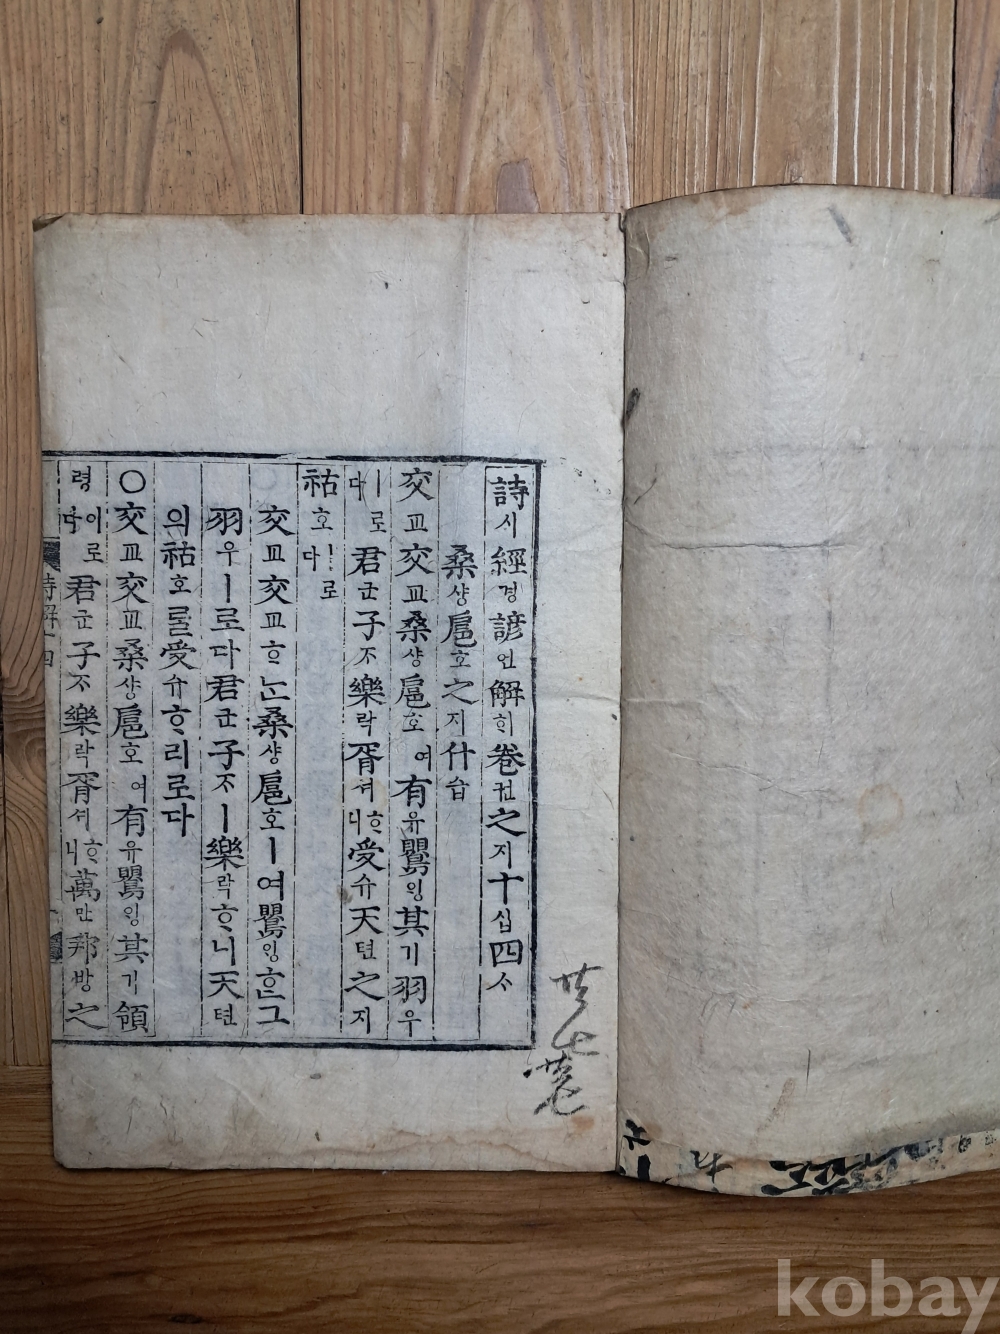 詩시經경諺언解ᄒᆡ卷권之지十십四ᄉᆞ
桑상扈호之지什습
交교交교桑상扈호여有유鸎ᄋᆡᆼ其기羽우
ㅣ로다君군子ᄌᆞ樂락胥셔ᄒᆞ니受슈天텬之지
祜호ㅣ로다
交교交교ᄒᆞᄂᆞᆫ桑상扈호ㅣ여鸎ᄋᆡᆼᄒᆞᆫ그
羽우ㅣ로다君군子ᄌᆞㅣ樂락ᄒᆞ니天텬
의祜호ᄅᆞᆯ受슈ᄒᆞ리로다
○交교交교桑상扈호여有유鸎ᄋᆡᆼ其기領
령이로다君군子ᄌᆞ樂락胥셔ᄒᆞ니萬만邦방之
詩解十四
kobay